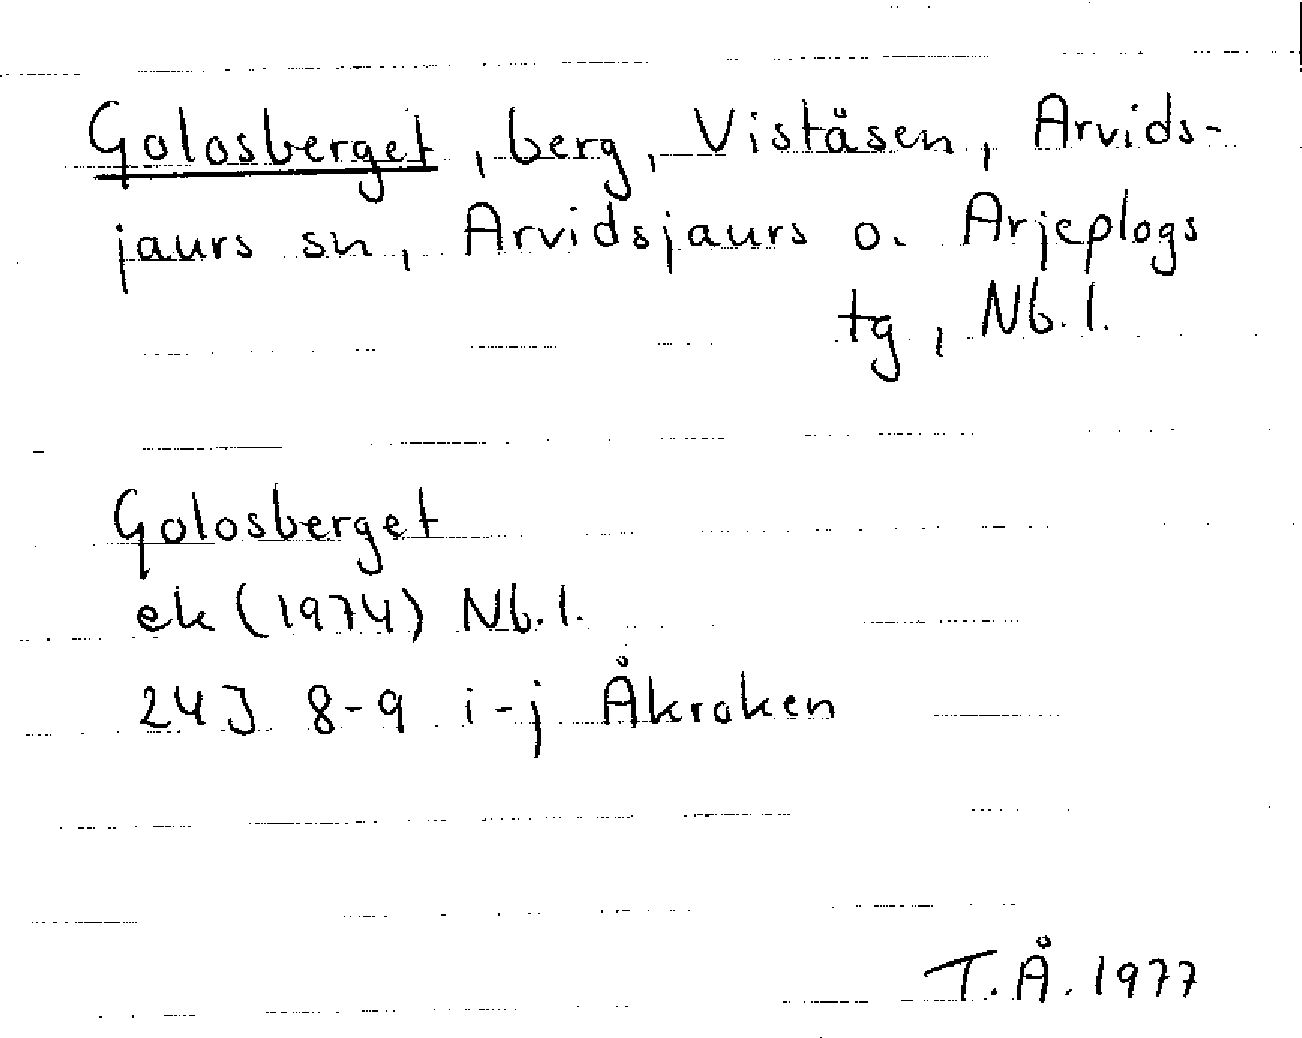 Golosberget, berg, Viståsen, Arvids-
jaurs sn, Arvidsjaurs o. Arjeplogs
tg, Nb. l.
Golosberget
ek (1974) Nb. l.
24J 8-9 i-j Åkroken
T.Å. 1977